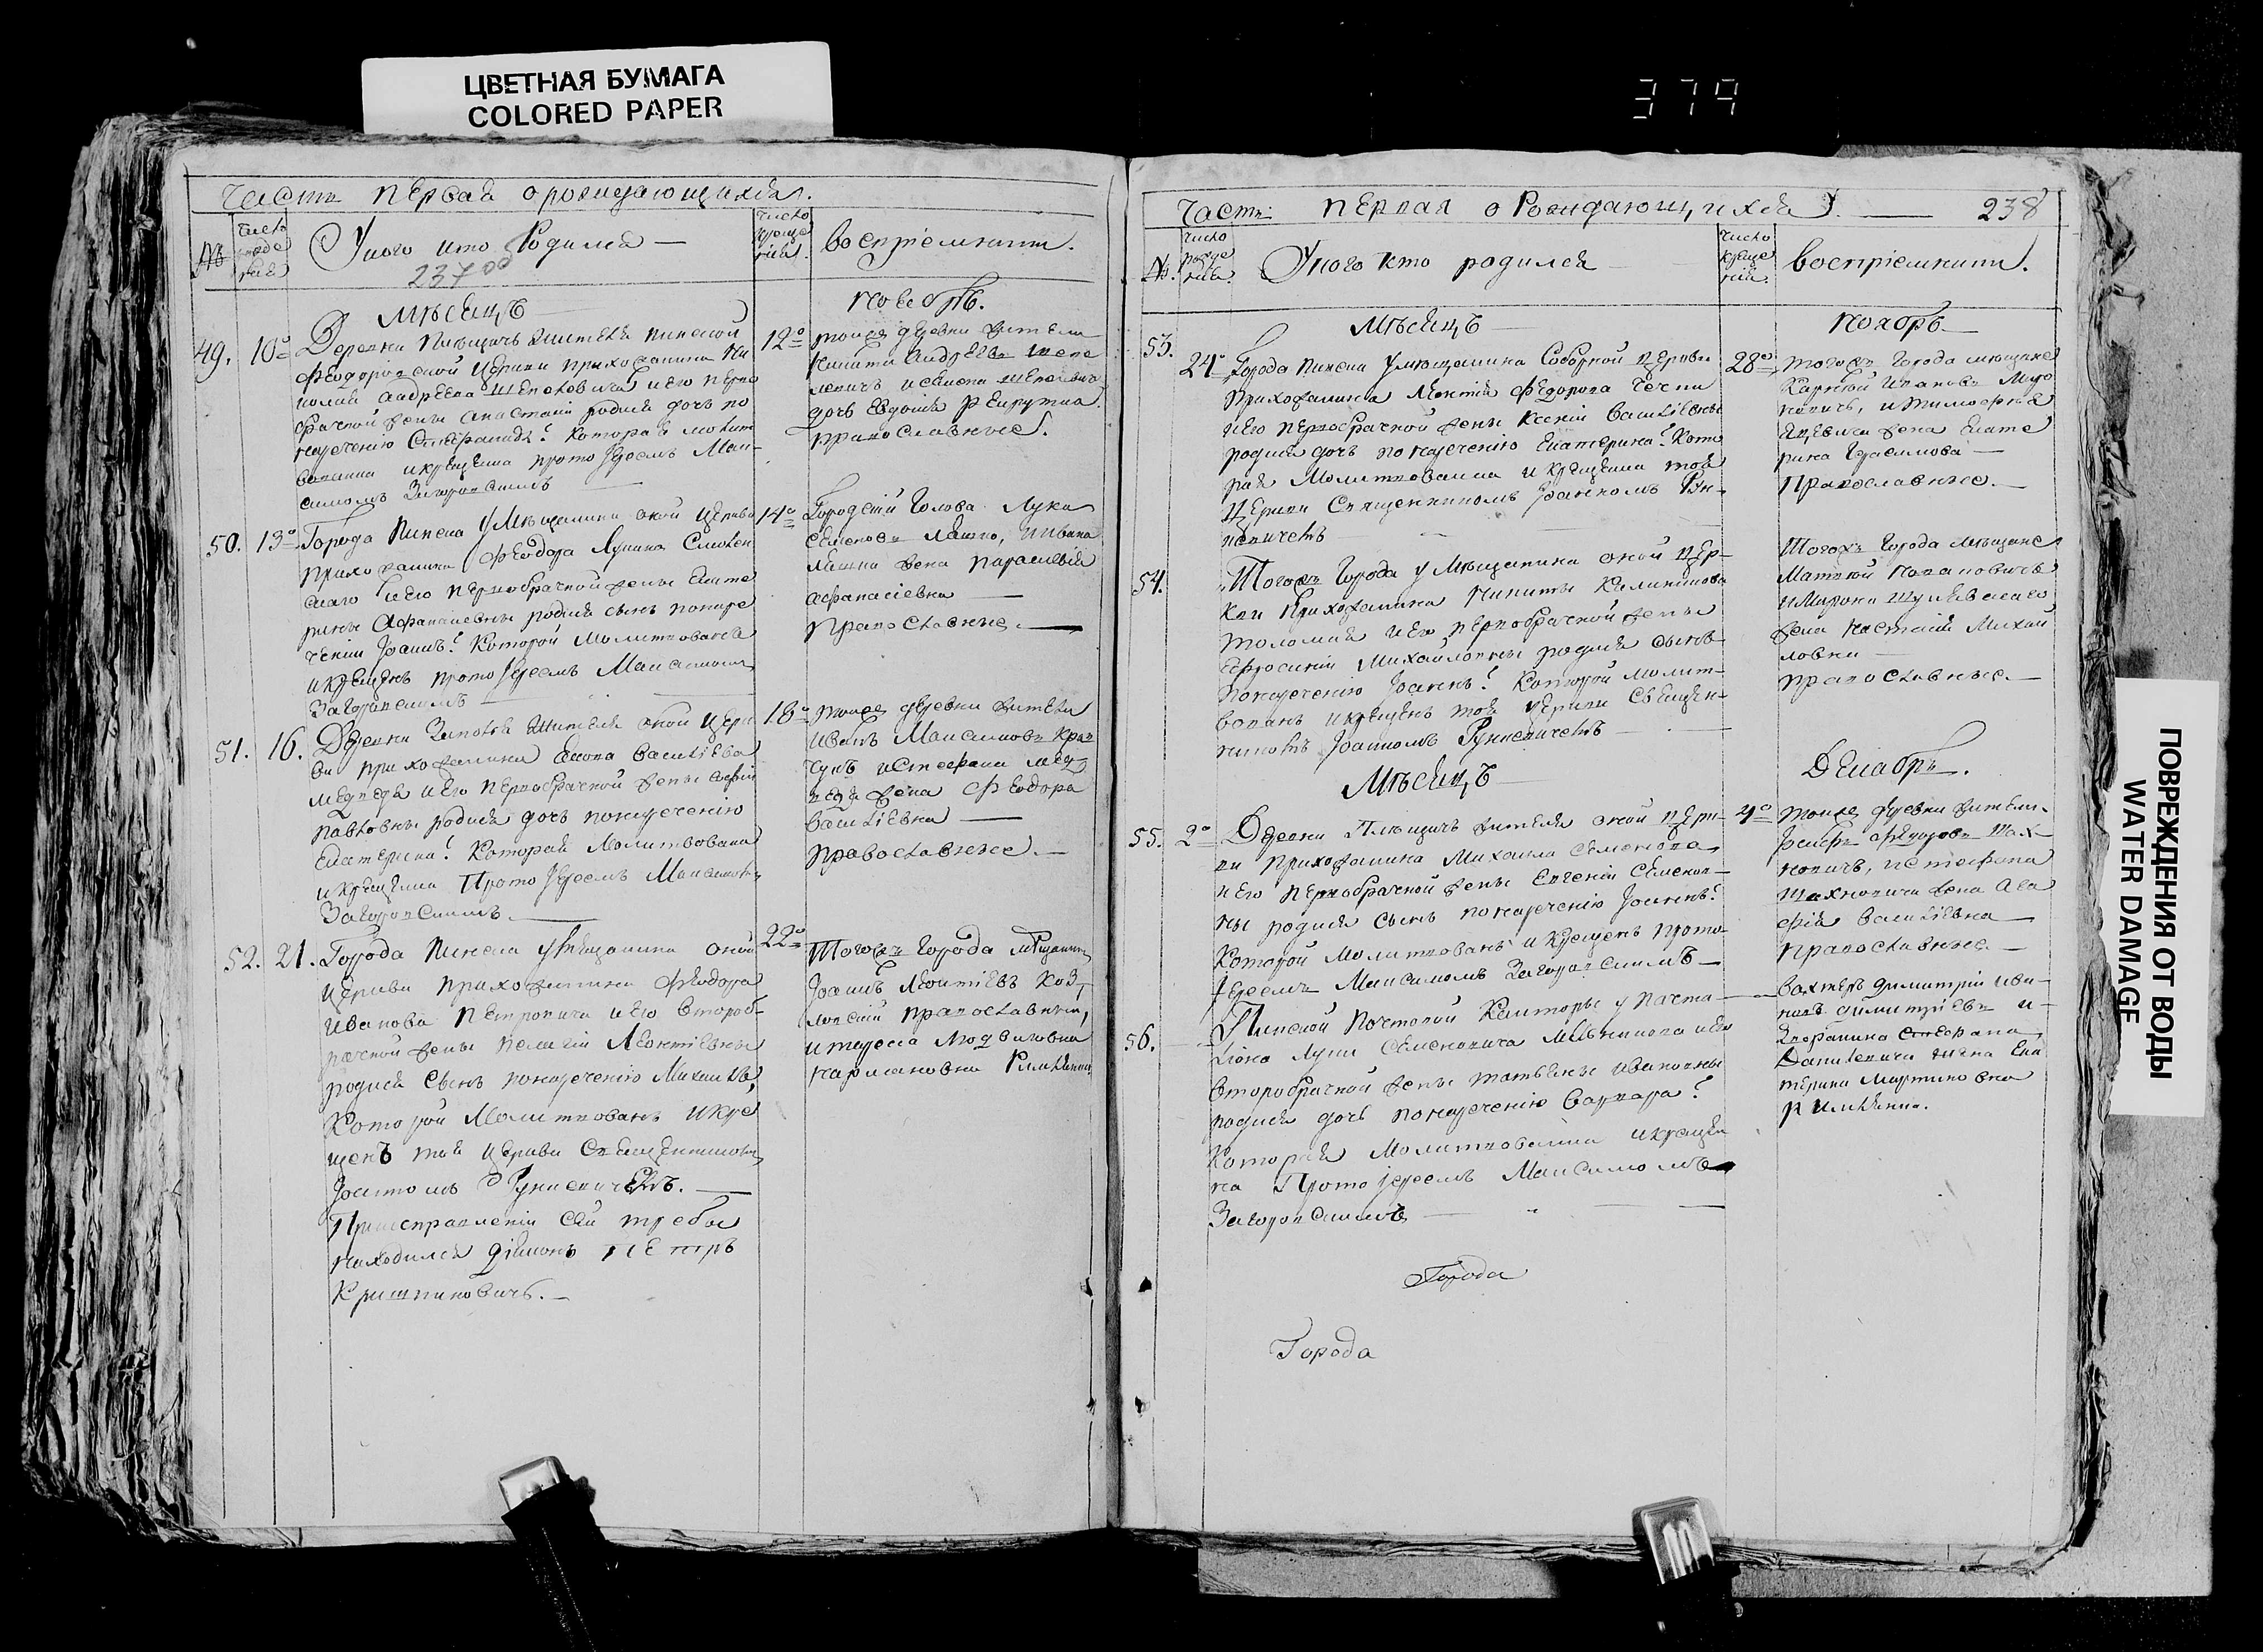 ЦВЕТНАЯ БУМАГА
COLORED PAPER
379
Часть первая о рождающихся.
№
Число рожде нія
У кого кто Родился
Число креще нія
воспріемники.
237 об
Мѣсяцъ
ноябрь.
49. 10
Деревни жителя пинской
Феодоровской Церкви прихожанина Ни
колая Андреева и его перво
брачной жены Анастасіи родися дочь по
наречению Которая молит
вованна и крещена протоіереемъ Мак
симомъ Загоровскимъ
12
тоя же деревни жители
Никита Андреевъ
дочь Евдокія
православные.
50. 13
Города Пинска у Мещанина оной Церкви
прихожанина Феодора Лукина
и его первобрачной жены Екате
рины Афанасиевны родися сынъ по наре
чению Іоаннъ? Которой молитвованъ
и крещенъ протоіереемъ Максимомъ
Загоровскимъ
14
Городскій Голова Лука
Семеновъ и Ивана
жена Параскевія
Афанасіевна
Православные.
51. 16.
Деревни жителя оной Церк
ви прихожанина Василіева
Медведя и его первобрачной жены Софіи
Павловны родися дочь по наречению
Екатерина? Которая Молитвована
и крещенна Протоіереемъ Максимомъ
Загоровскимъ.
18
тоя же деревни жители
Иванъ Максимовъ Крав
чукъ и Стефана Мед
ведя жена Феодора
Василіевна
православные.
52. 21.
Города Пинска у Мещанина оной
Церкви прихожанина Феодора
Иванова Петровича и его второб
рачной жены Пелагіи Леонтіевны
родися сынъ по наречению Михаилъ,
Которой Молитвованъ и кре
щенъ тоя церкви Священникомъ
Іоанномъ Рункевичемъ.
При исправленіи сей требы
находился діаконъ Петръ
Криштиковичъ.
22
Того жъ Города мещанинъ
Іоаннъ Леонтіевъ Коз
ловскій православный,
и тереса Людвиговна
Кармановна Римлянка
Часть первая о Рождающихся
238
№.
Число рожде нія.
У кого кто родился
Число креще нія.
воспріемники.
Мѣсяцъ
ноябрь
53. 24
Города Пинска у мещанина Соборной церкви
прихожанина Леонтія Федорова
и его первобрачной жены Ксеніи Василіевны
родися дочь по наречению Екатерина? Кото
рая Молитвованна и крещенна тоя
Церкви Священникомъ Іоанномъ Рун-
кевичемъ
28
того жъ Города мещане
Корней Ивановъ Миро
новичъ, и Тимофея
жена Екате
рина Герасимова
Православные.
54.
Того жъ Города у Мещанина оной Цер-
кви Прихожанина Никиты Калиникова
и его первобрачной жены
Ефросиніи Михайловны родися сынъ
по наречению Іоаннъ? Которой молит-
вованъ и крещенъ тоя церкви Священ-
никомъ Іоанномъ Рункевичемъ
Того жъ Города мещане
Матвей
и Мирона
жена Настасія Михай
ловна
православные.
Мѣсяцъ
Декабрь.
55. 2
Деревни жителя оной церк-
ви Прихожанина Михаила Семенова
и его первобрачной жены Евгеніи Семенов-
ны родися сынъ по наречению Іоаннъ?
Которой Молитвованъ и крещенъ прото
іереемъ Максимомъ Загоровскимъ
4
тоя же деревни жители.
Іосифъ Федоровъ Мах-
новичъ, и Стефана
Махновича жена Ага
фія Василіевна
православные.
56.
Пинской Почтовой Конторы у почта-
ліона Луки Семеновича Мельникова и его
второбрачной жены Татьяны Ивановны
родися дочь по наречению Варвара?
Которая Молитвованна и крещен
на Протоіереемъ Максимомъ
Загоровскимъ
Вахтеръ Димитрій
Димитріевъ и
Дворанина
Даниловича жена Ека
терина Мартиновна
римлянка.
Города
Города
ПОВРЕЖДЕНИЯ ОТ ВОДЫ
WATER DAMAGE